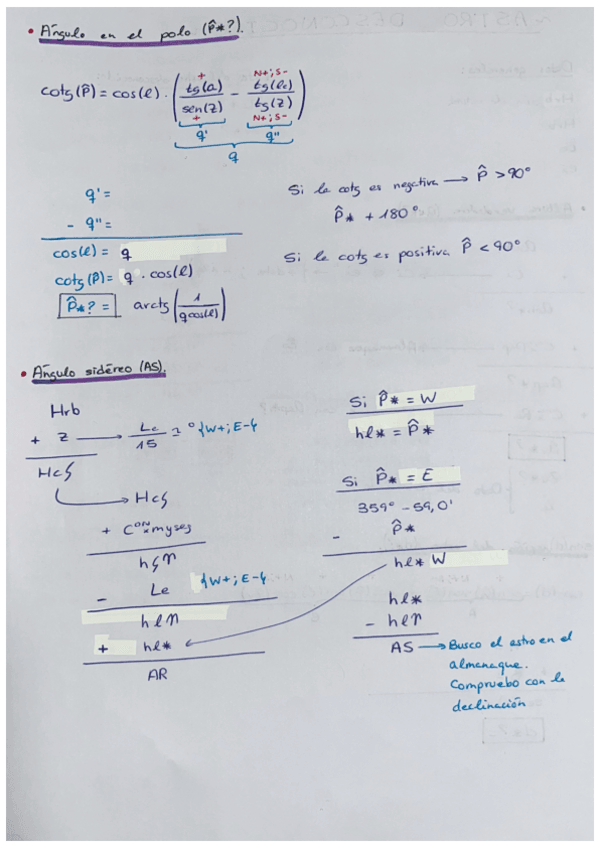 • Ángulo en el polo (P̂*?).
cotg(P̂) = cos(l) · ( tg(a) / sen(z) − tg(lc) / tg(z) )
+ N+; S-
+ N+; S-
q' q"
q
q' =
- q" =
cos(l) = q
cotg(P̂) = q · cos(l)
P̂*? = arctg( 1 / q cos(l) )
Si la cotg es negativa → P̂ > 90°
P̂* + 180°
Si la cotg es positiva P̂ < 90°
• Ángulo sidéreo (AS).
Hrb
+ z → Le / 15 ≃ ° {W+; E-}
HcG
→ HcG
+ Cᵒⁿ x myseg
hGϒ
- Le {W+; E-}
hlϒ
+ hl*
AR
Si P̂* = W
hl* = P̂*
Si P̂* = E
359° - 59,0'
- P̂*
hl* W
hl*
- hlϒ
AS → Busco el astro en el
almanaque.
Compruebo con la
declinación